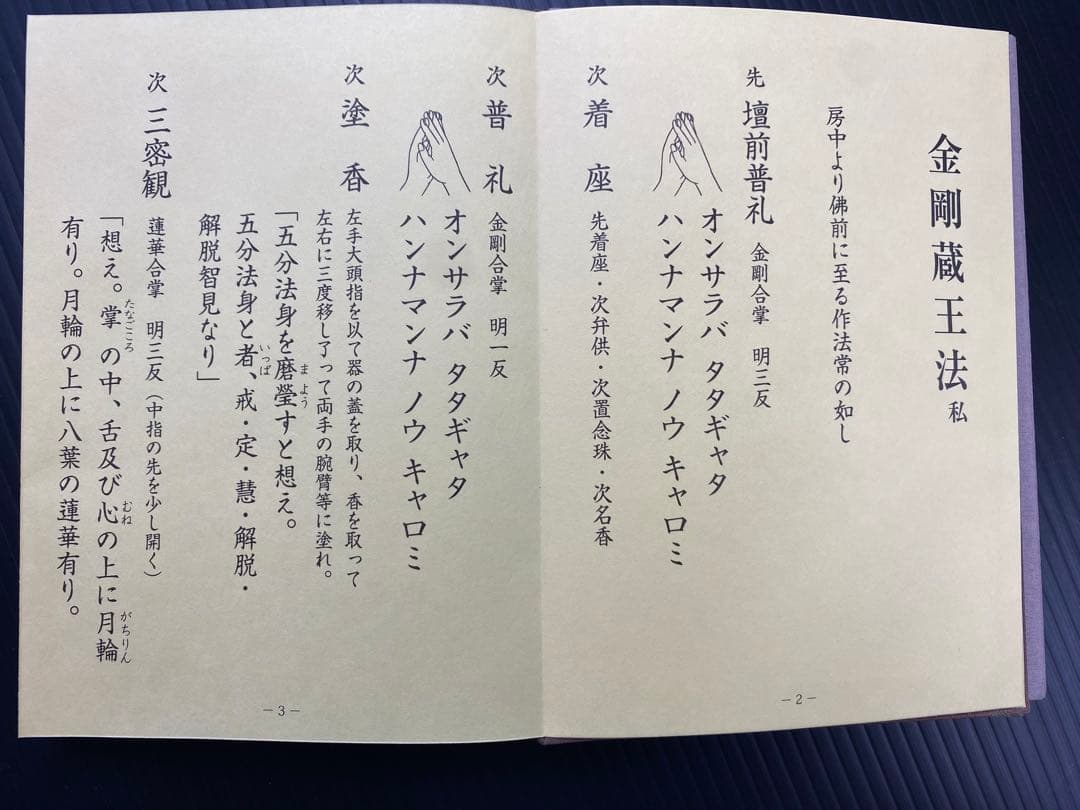 金剛蔵王法 私
房中より佛前に至る作法常の如し
先 壇前普礼 金剛合掌 明三反
オンサラバ タタギャタ
ハンナマンナ ノウ キャロミ
次 着座 先着座・次弁供・次置念珠・次名香
－2－
次 普礼 金剛合掌 明一反
オンサラバ タタギャタ
ハンナマンナ ノウ キャロミ
次 塗香 左手大頭指を以て器の蓋を取り、香を取って
左右に三度移し了って両手の腕臂等に塗れ。
「五分法身を磨瑩すと想え。
まよう
五分法身と者、戒・定・慧・解脱・
いっぱ
解脱智見なり」
次 三密観 蓮華合掌 明三反（中指の先を少し開く）
「想え。掌の中、舌及び心の上に月輪
たなごころ むね がちりん
有り。月輪の上に八葉の蓮華有り。
－3－